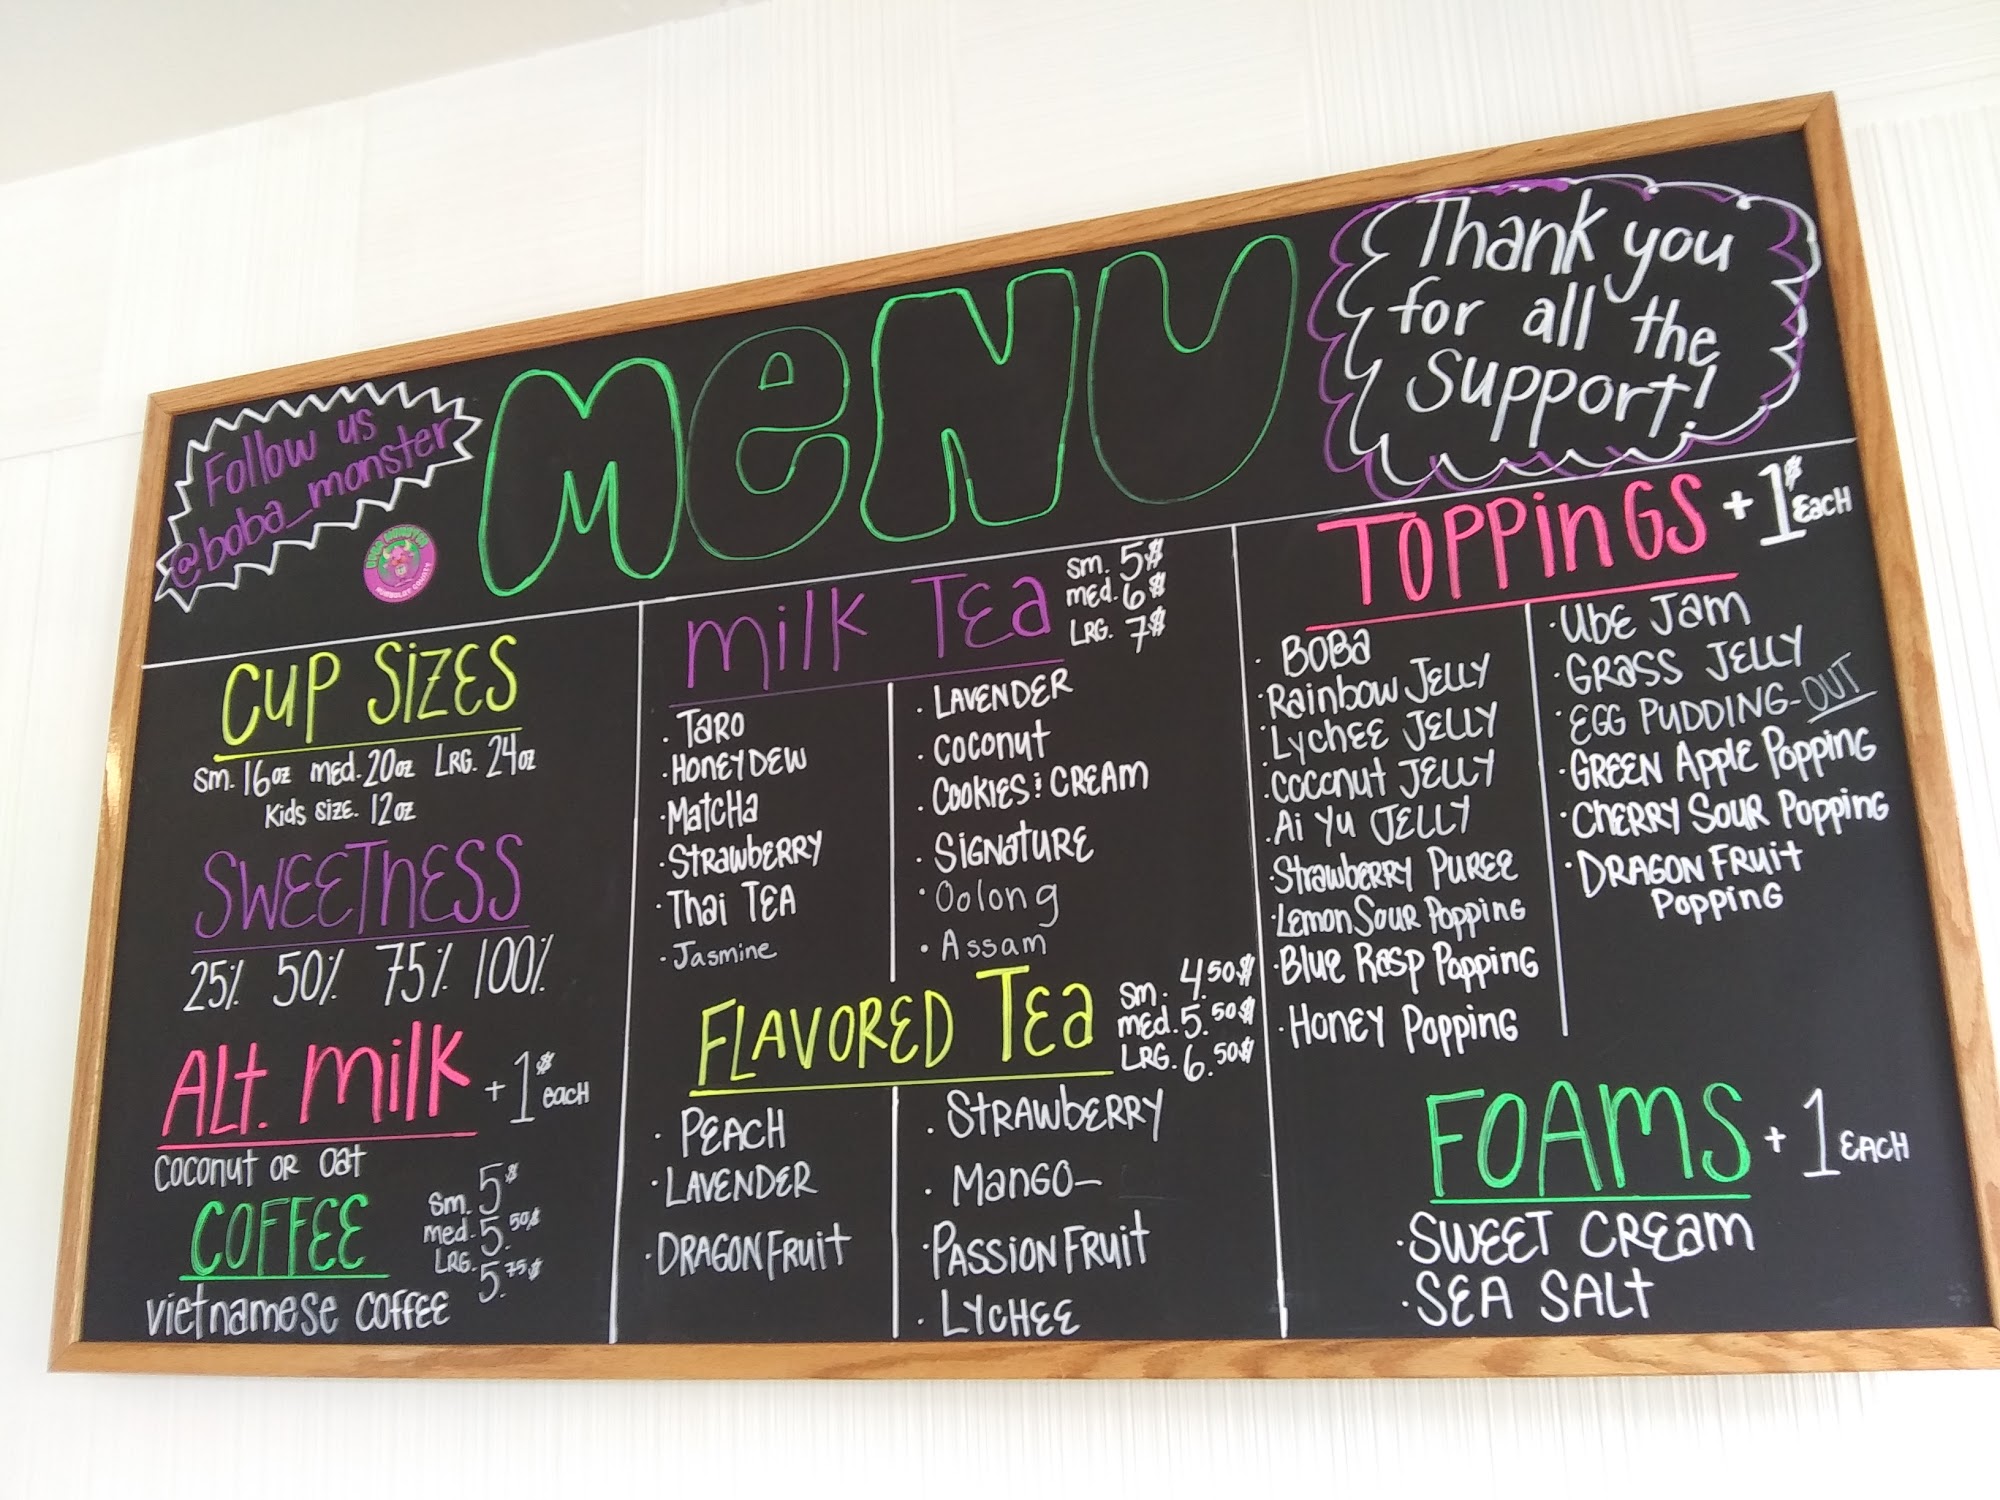 Follow us
@boba_monster
BOBA MONSTER
HUMBOLDT COUNTY
MENU
Thank you
for all the
support!
CUP SIZES
sm. 16oz med. 20oz LRG. 24oz
Kids size. 12oz
SWEETNESS
25% 50% 75% 100%
ALT. milk +1$ each
coconut or oat
COFFEE
sm. 5$
med. 5.50$
LRG. 5.75$
vietnamese coffee
milk TEA
sm. 5$
med. 6$
LRG. 7$
· TARO
· HONEYDEW
· MATCHA
· STRAWBERRY
· Thai TEA
· Jasmine
· LAVENDER
· COCONUT
· COOKIES & CREAM
· SIGNATURE
· Oolong
· Assam
FLAVORED TEA
sm. 4.50$
med. 5.50$
LRG. 6.50$
· PEACH
· LAVENDER
· DRAGONFRUIT
· STRAWBERRY
· MANGO-
· PASSIONFRUIT
· LYCHEE
TOPPINGS +1$ EACH
· BOBA
· Rainbow JELLY
· Lychee JELLY
· Coconut JELLY
· Ai Yu JELLY
· Strawberry PUREE
· Lemon Sour Popping
· Blue Rasp Popping
· Honey Popping
· UBE JAM
· GRASS JELLY
· EGG PUDDING-OUT
· GREEN Apple Popping
· CHERRY SOUR Popping
· DRAGON FRUIT
Popping
FOAMS +1 EACH
· SWEET CREAM
· SEA SALT